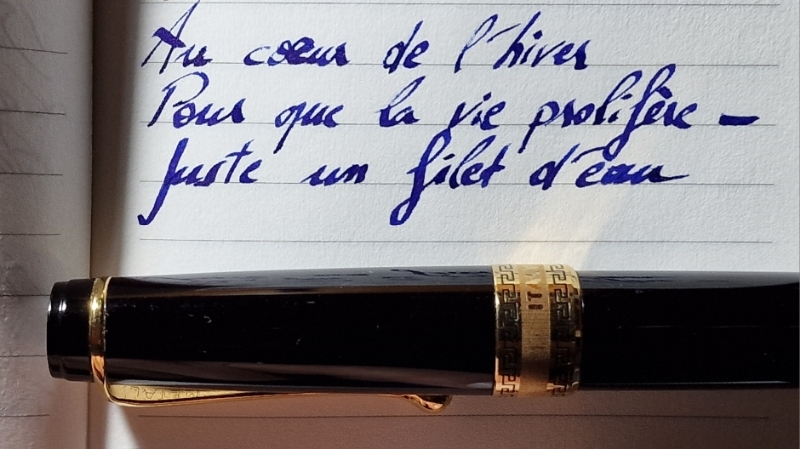 Au coeur de l'hiver
Pour que la vie prolifère –
Juste un filet d'eau
ITA